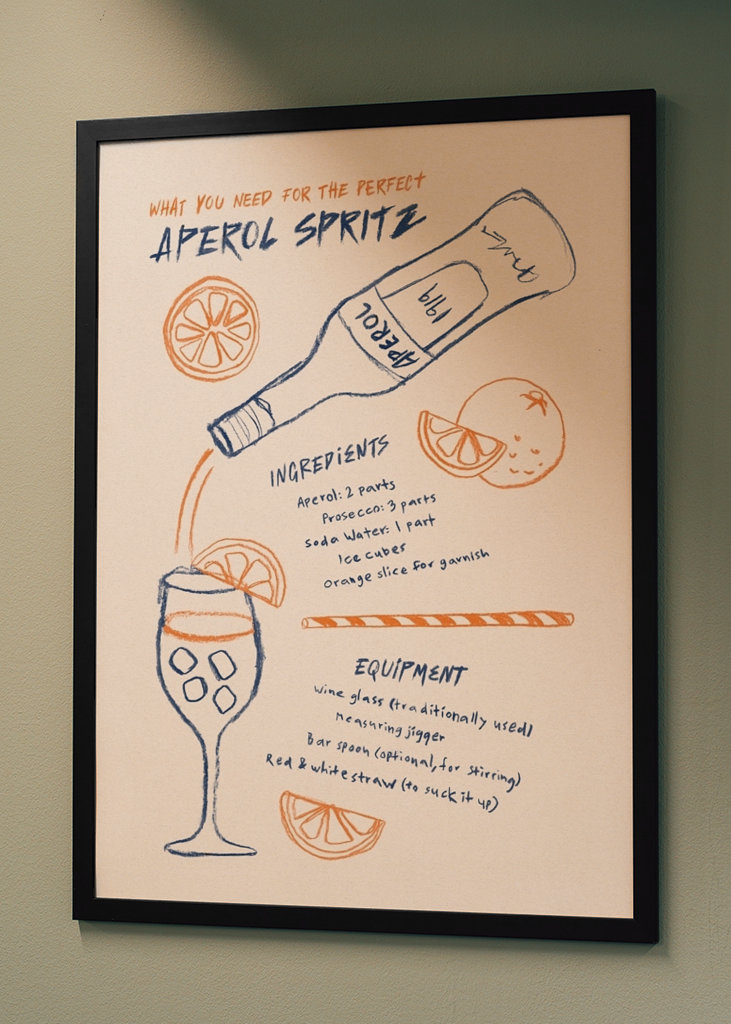 WHAT YOU NEED FOR THE PERFECT
APEROL SPRITZ
1919
APEROL
INGREDIENTS
Aperol: 2 parts
Prosecco: 3 parts
Soda Water: 1 part
Ice cubes
Orange slice for garnish
EQUIPMENT
Wine glass (traditionally used)
Measuring jigger
Bar spoon (optional, for stirring)
Red & white straw (to suck it up)